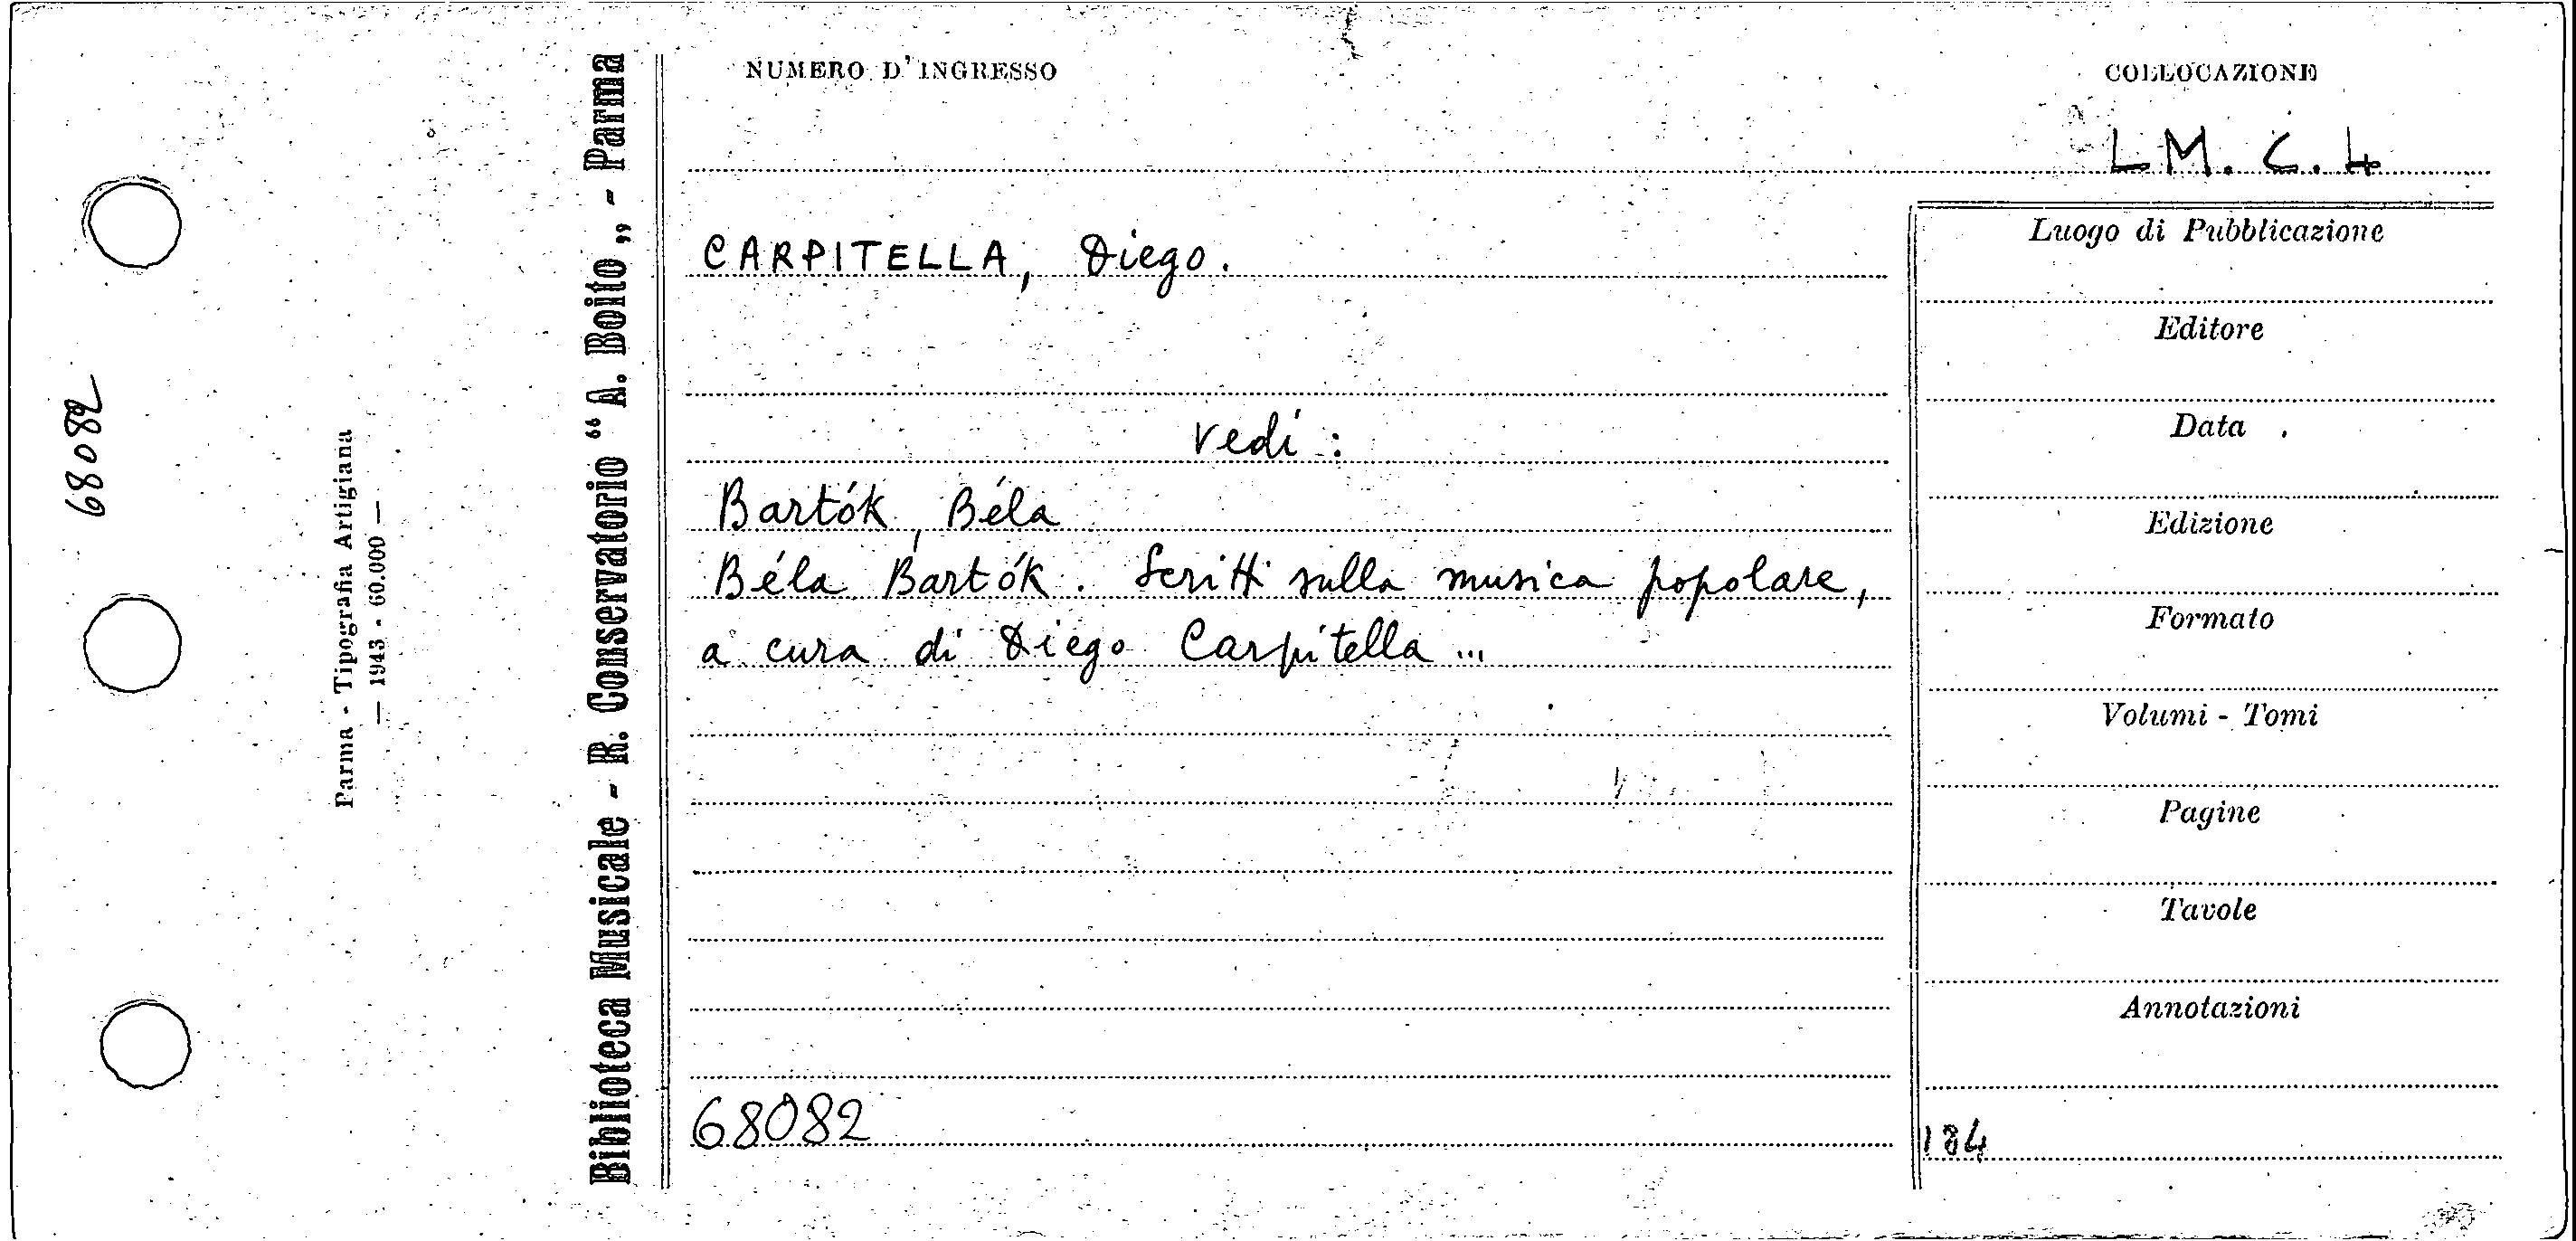 68082
Parma - Tipografia Artigiana
— 1943 - 60.000 —
Biblioteca Musicale - R. Conservatorio “ A. Boito „ - Parma
NUMERO D'INGRESSO
COLLOCAZIONE
LM. C. 4
CARPITELLA, Diego.
vedi :
Bartók, Béla
Béla Bartók. Scritti sulla musica popolare,
a cura di Diego Carpitella ...
68082
Luogo di Pubblicazione
Editore
Data
Edizione
Formato
Volumi - Tomi
Pagine
Tavole
Annotazioni
184